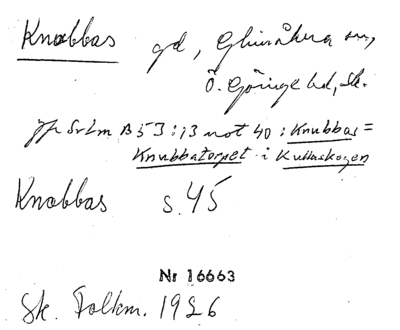 Knabbas gd, Glimåkra sn,
Ö. Göinge hd, Sk.
Jfr SvLm B53:13 not 40: Knubbas =
Knubbatorpet i Kullaskogen
Knabbas s. 45
Nr 16663
Sk. Folkm. 1926